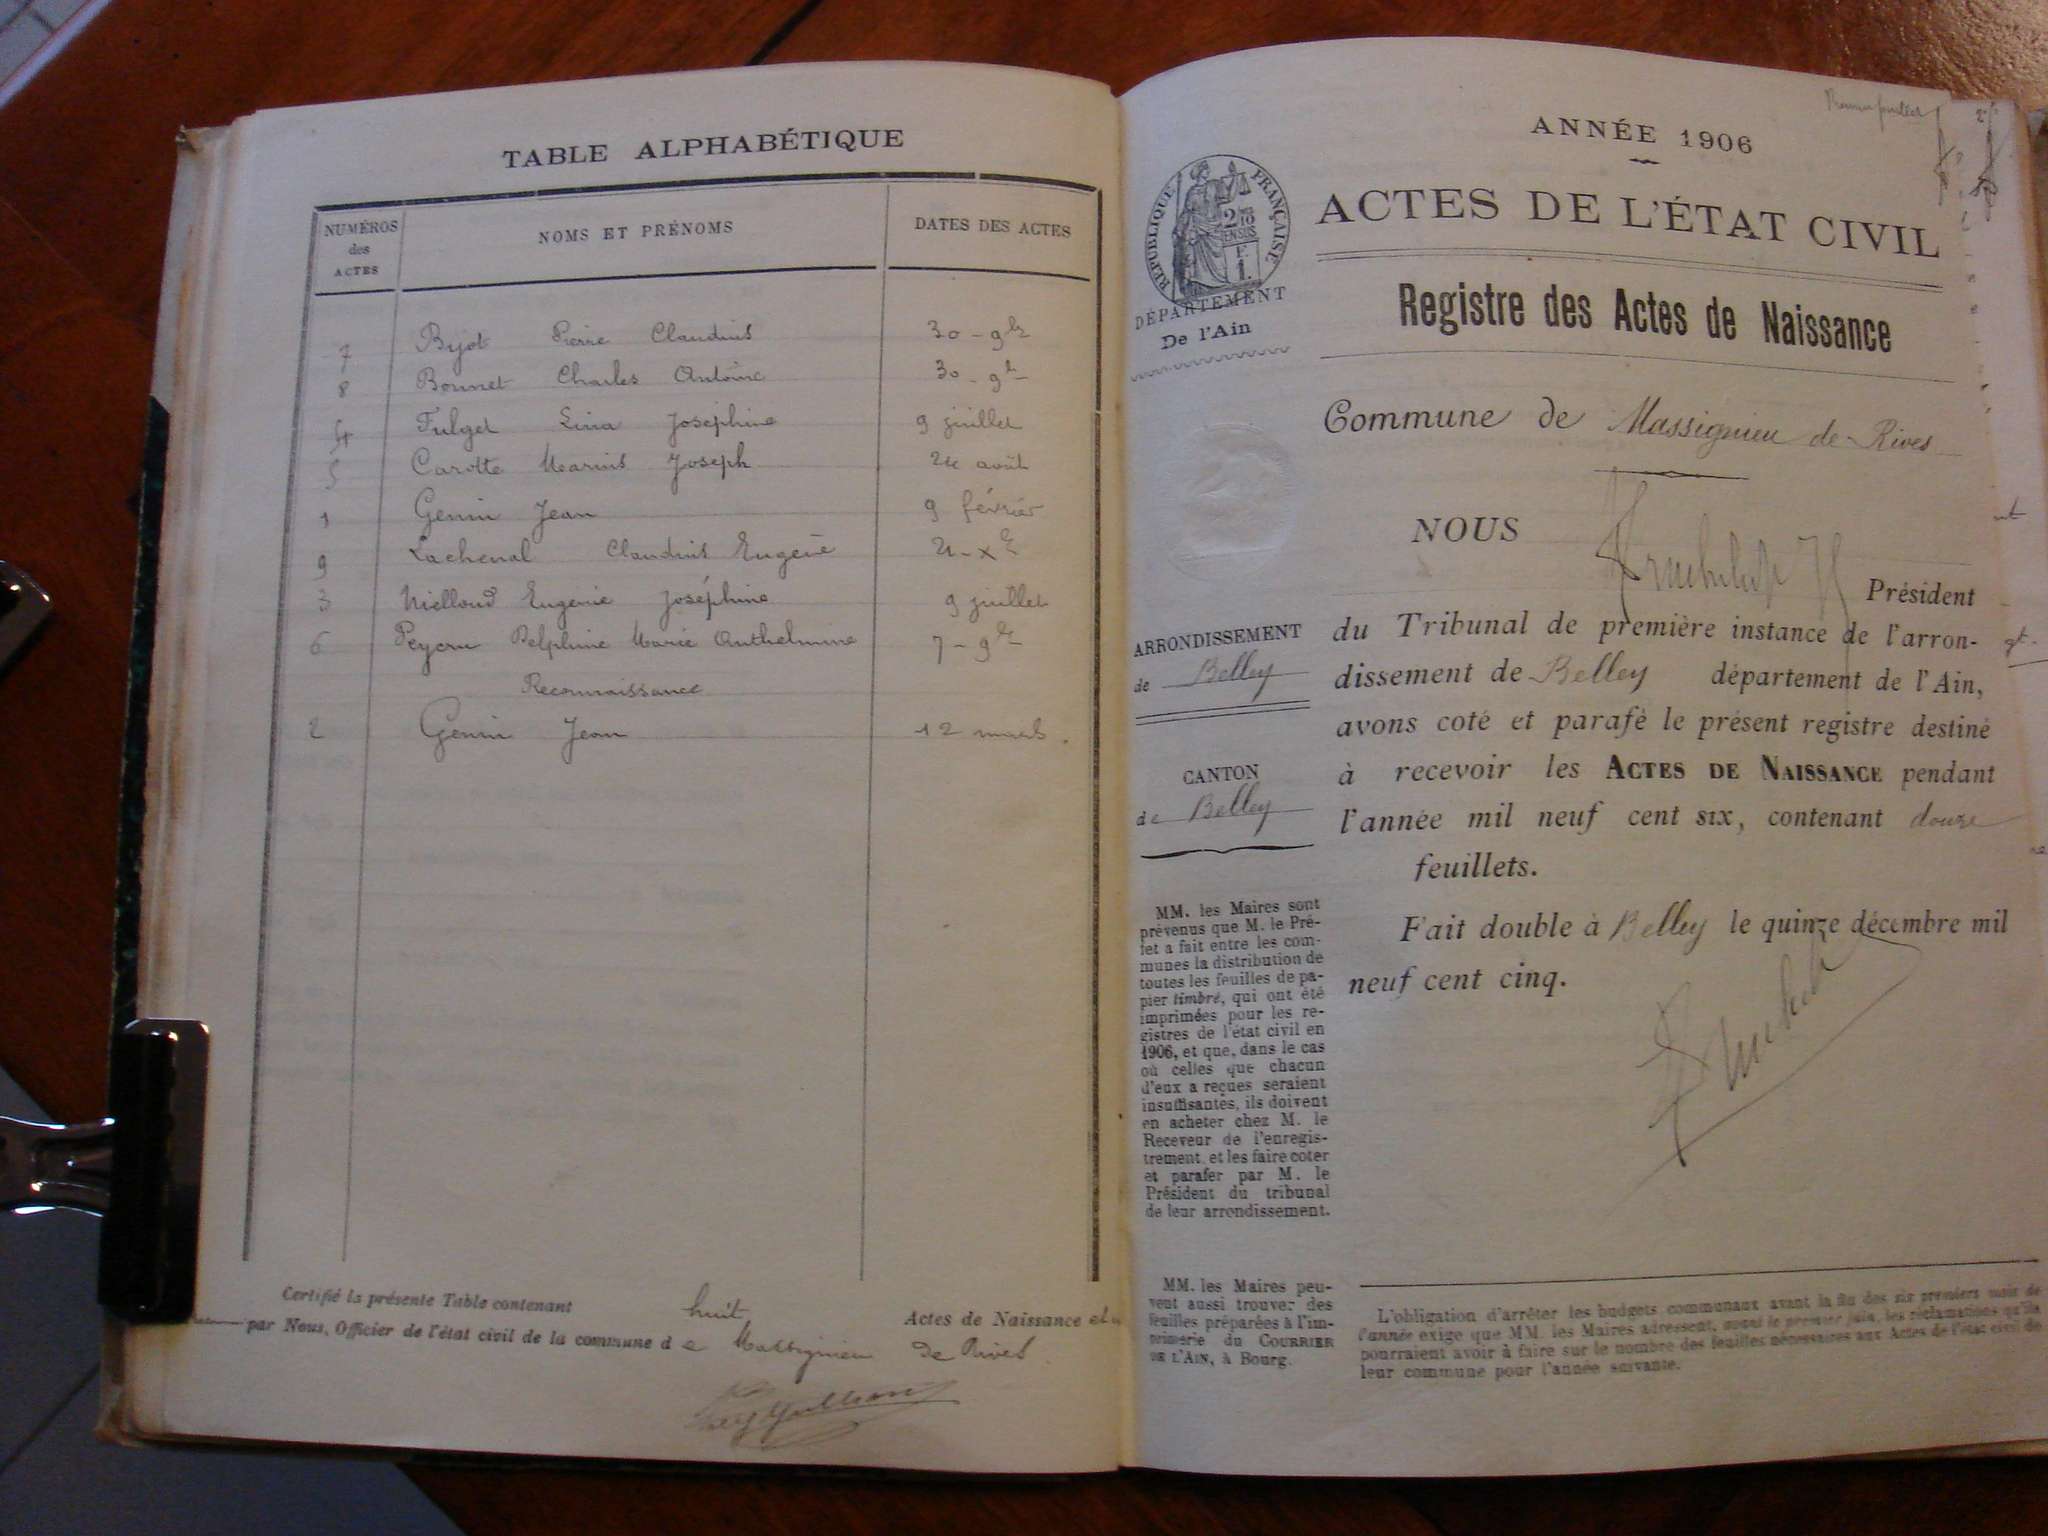 TABLE ALPHABÉTIQUE
NUMÉROS des ACTES
NOMS ET PRÉNOMS
DATES DES ACTES
7 Bijot Pierre Claudius 30 - 9bre
8 Bonnet Charles Antoine 30 - 9bre
4 Fulget Lina Joséphine 9 juillet
5 Carotte Marius Joseph 24 août
1 Genin Jean 9 février
9 Lachenal Claudius Eugène 21 - Xbre
3 Nielloud Eugénie Joséphine 9 juillet
6 Peycru Delphine Marie Anthelmine 7 - 9bre
Reconnaissance
2 Genin Jean 12 mars.
Certifié la présente Table contenant huit Actes de Naissance et
par Nous, Officier de l'état civil de la commune de Massignieu de Rives.
ANNÉE 1906
ACTES DE L'ÉTAT CIVIL
RÉPUBLIQUE FRANÇAISE
2 DES 10 EN SUS
1 F.
DÉPARTEMENT
De l'Ain
Registre des Actes de Naissance
Commune de Massignieu de Rives
NOUS
Président
du Tribunal de première instance de l'arron-
dissement de Belley département de l'Ain,
avons coté et parafé le présent registre destiné
à recevoir les ACTES DE NAISSANCE pendant
l'année mil neuf cent six, contenant douze
feuillets.
Fait double à Belley le quinze décembre mil
neuf cent cinq.
ARRONDISSEMENT
de Belley
CANTON
de Belley
MM. les Maires sont
prévenus que M. le Pré-
fet a fait entre les com-
munes la distribution de
toutes les feuilles de pa-
pier timbré, qui ont été
imprimées pour les re-
gistres de l'état civil en
1906, et que, dans le cas
où celles que chacun
d'eux a reçues seraient
insuffisantes, ils doivent
en acheter chez M. le
Receveur de l'enregis-
trement, et les faire coter
et parafer par M. le
Président du tribunal
de leur arrondissement.
MM. les Maires peu-
vent aussi trouver des
feuilles préparées à l'im-
primerie du COURRIER
DE L'AIN, à Bourg.
L'obligation d'arrêter les budgets communaux avant la fin des six premiers mois de
l'année exige que MM. les Maires adressent, avant le premier juin, les réclamations qu'ils
pourraient avoir à faire sur le nombre des feuilles nécessaires aux Actes de l'état civil de
leur commune pour l'année suivante.